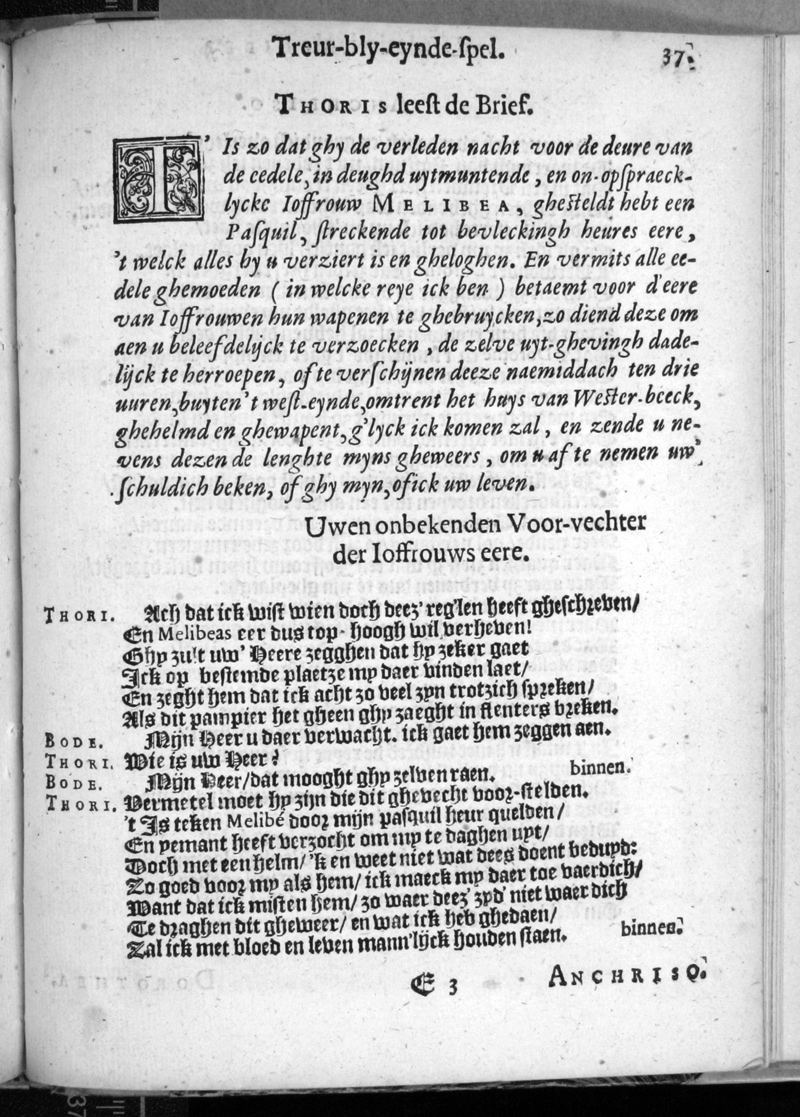 Treur-bly-eynde-ſpel. 37.
THORIS leeſt de Brief.
T' Is zo dat ghy de verleden nacht voor de deure van
de eedele, in deughd uytmuntende, en on-opſpraeck-
lycke Ioffrouw MELIBEA, gheſteldt hebt een
Paſquil, ſtreckende tot bevleckingh heures eere,
't welck alles by u verziert is en gheloghen. En vermits alle ee-
dele ghemoeden ( in welcke reye ick ben ) betaemt voor d'eere
van Ioffrouwen hun wapenen te ghebruycken, zo diend deze om
aen u beleefdelijck te verzoecken, de zelve uyt-ghevingh dade-
lijck te herroepen, ofte verſchijnen deeze naemiddach ten drie
uuren, buyten 't weſt-eynde, omtrent het huys van Weſter-beeck,
ghehelmd en ghewapent, g'lyck ick komen zal, en zende u ne-
vens dezen de lenghte myns gheweers, om u af te nemen uw
ſchuldich beken, of ghy mijn, of ick uw leven.
Uwen onbekenden Voor-vechter
der Ioffrouws eere.
THORI. Ach dat ick wiſt wien doch deez' reg'len heeft gheſchreven/
En Melibeas eer dus top-hoogh wil verheven!
Ghy zult uw' Heere zegghen dat hy zeker gaet
Ick op beſtemde plaetze my daer vinden laet/
En zeght hem dat ick acht zo veel zyn trotzich ſpreken/
Als dit pampier het gheen ghy zaeght in flenters breken.
BODE. Mijn Heer u daer verwacht. ick gaet hem zeggen aen.
THORI. Wie is uw Heer?
BODE. Mijn Heer/ dat mooght ghy zelven raen. binnen.
THORI. Vermetel moet hy zijn die dit ghevecht voor-ſtelden.
't Is teken Melibé door mijn paſquil heur quelden/
En yemant heeft verzocht om my te daghen uyt/
Doch met een helm/ 'k en weet niet wat dees doent beduyd:
Zo goed voor my als hem/ ick maeck my daer toe vaerdich/
Want dat ick miſten hem/ zo waer deez' zyd' niet waerdich
Te draghen dit gheweer/ en wat ick heb ghedaen/
Zal ick met bloed en leven mann'lijck houden ſtaen. binnen.
E 3 ANCHRISO.